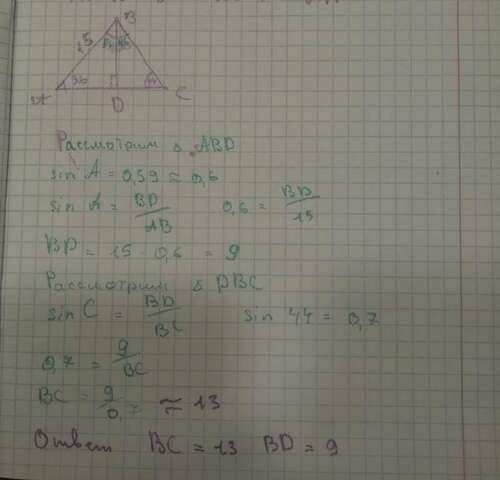 B
15
A
D
C
Рассмотрим ▵ ABD
sin A = 0,59 ≈ 0,6
sin A = BD/AB   0,6 = BD/15
BD = 15 · 0,6 = 9
Рассмотрим ▵ DBC
sin C = BD/BC   sin 44 = 0,7
0,7 = 9/BC
BC = 9/0,7 ≈ 13
Ответ BC = 13 BD = 9